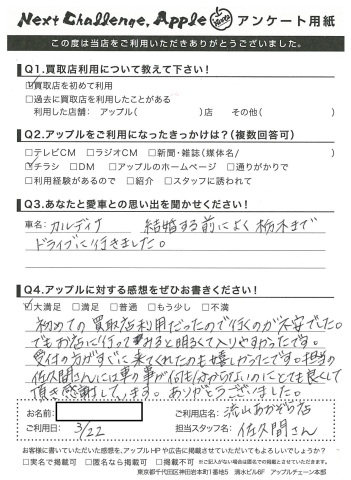 Next Challenge, Apple アンケート用紙
この度は当店をご利用いただきありがとうございました。
Q1.買取店利用について教えて下さい!
☑買取を初めて利用
□過去に買取店を利用したことがある
利用した店舗: アップル( )店 その他( )
Q2.アップルをご利用になったきっかけは?(複数回答可)
□テレビCM □ラジオCM □新聞・雑誌(媒体名/ )
☑チラシ □DM □アップルのホームページ □通りがかりで
□利用経験があるので □紹介 □スタッフに誘われて
Q3.あなたと愛車との思い出を聞かせください!
車名: カルディナ 結婚する前によく栃木まで
ドライブに行きました。
Q4.アップルに対する感想をぜひお書きください!
☑大満足 □満足 □普通 □もう少し □不満
初めての買取店利用だったので行くのが不安でした。
でもお店に行ってみると明るくて入りやすかったです。
受付の方がすぐに来てくれたのも嬉しかったです。担当の
佐久間さんには車の事が何も分からないのにとても良くして
頂き感謝しています。ありがとうございました。
お名前: ご利用店名: 流山おおぞら店
ご利用日: 3/22 担当スタッフ名: 佐久間さん
お客様に書いていただいた感想を、アップルHPや広告に掲載させていただいてもよろしいでしょうか?
□実名で掲載可 □匿名なら掲載可 □掲載不可 ※ご記入がない場合は匿名での掲載とさせていただきます。
東京都千代田区神田岩本町1番地5 清水ビル6F アップルチェーン本部